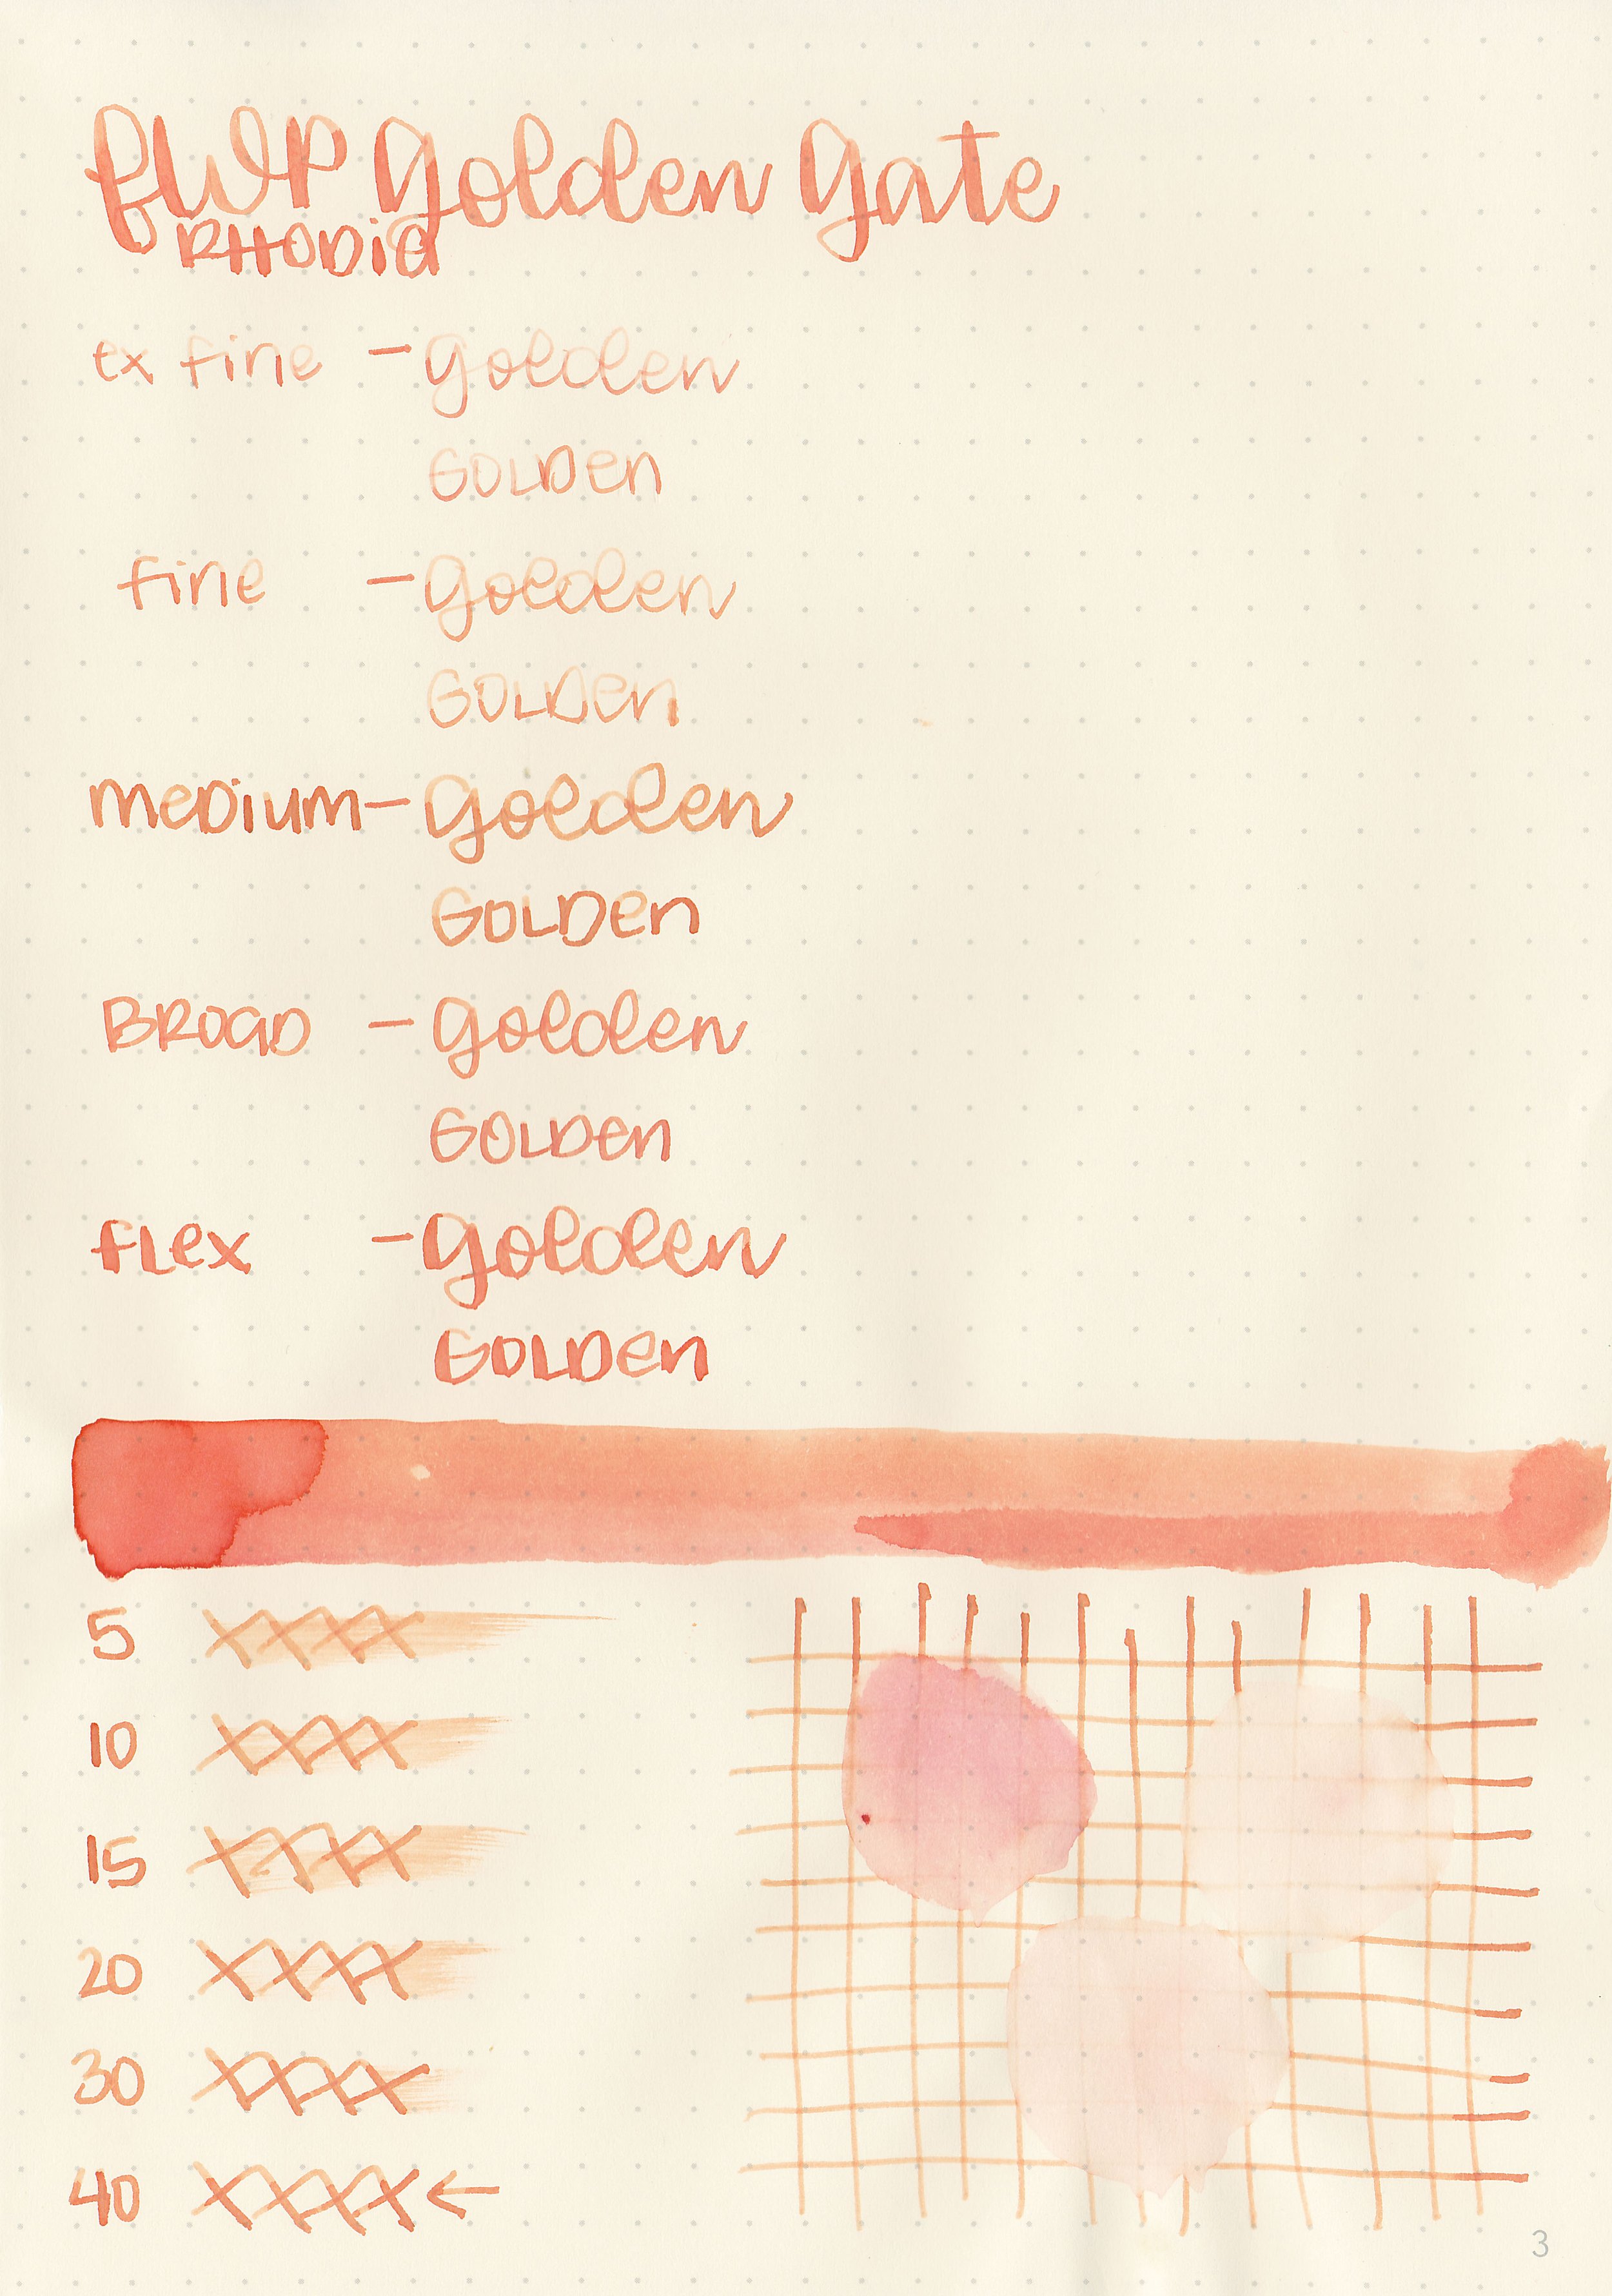 fWP Golden Gate
RHODia
ex fine - Golden
GOLDen
fine - Golden
GOLDen
meDium - Golden
GOLDen
BROaD - Golden
GOLDen
fLex - Golden
GOLDen
5 XXXX
10 XXXX
15 XXXX
20 XXXX
30 XXXX
40 XXXX ←
3